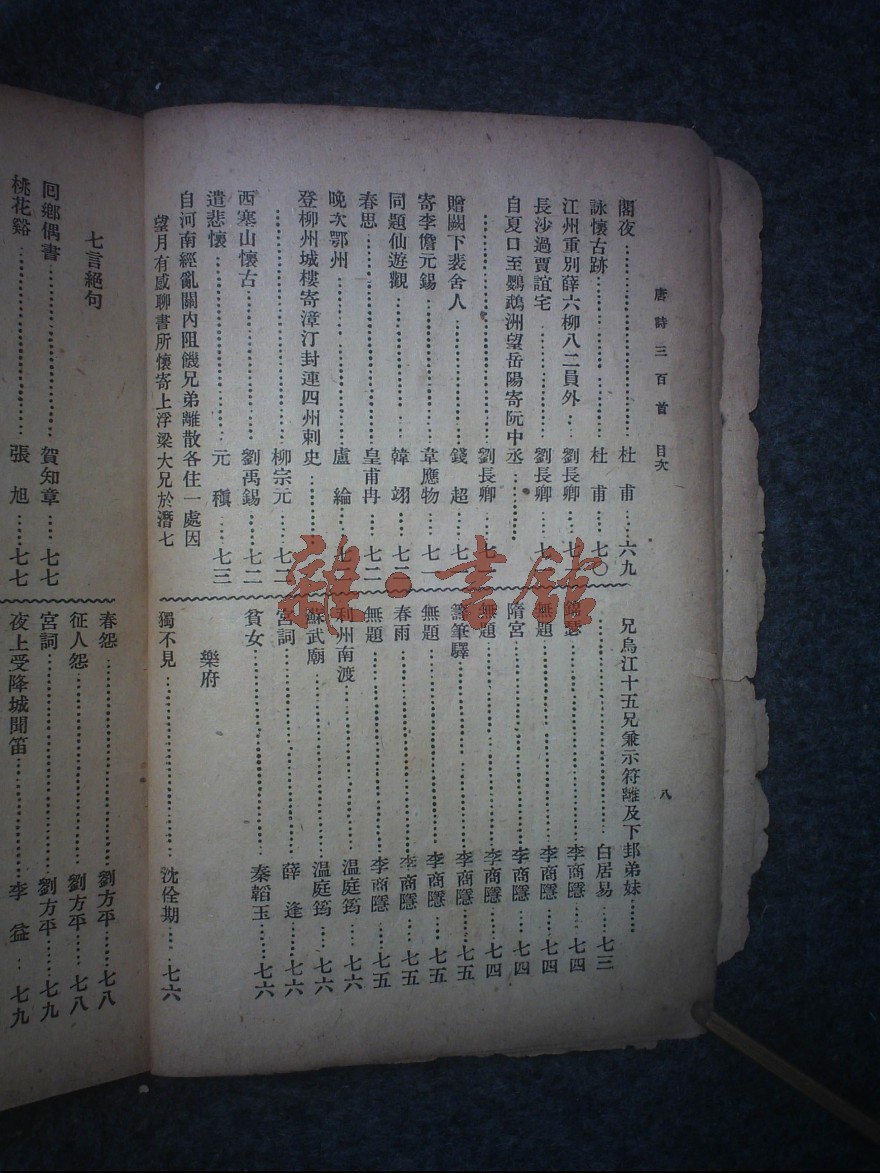 唐詩三百首 目次
八
閣夜 杜甫 六九
詠懷古跡 杜甫 七〇
江州重別薛六柳八二員外 劉長卿 七
長沙過賈誼宅 劉長卿 七
自夏口至鸚鵡洲望岳陽寄阮中丞
劉長卿 七
贈闕下裴舍人 錢起 七
寄李儋元錫 韋應物 七一
同題仙遊觀 韓翃 七二
春思 皇甫冉 七二
晚次鄂州 盧綸 七
登柳州城樓寄漳汀封連四州刺史
柳宗元 七二
西塞山懷古 劉禹錫 七二
遣悲懷 元稹 七三
自河南經亂關內阻饑兄弟離散各住一處因
望月有感聊書所懷寄上浮梁大兄於潛七
兄烏江十五兄兼示符離及下邽弟妹
白居易 七三
錦瑟 李商隱 七四
無題 李商隱 七四
隋宮 李商隱 七四
無題 李商隱 七四
籌筆驛 李商隱 七五
無題 李商隱 七五
春雨 李商隱 七五
無題 李商隱 七五
利州南渡 温庭筠 七六
蘇武廟 温庭筠 七六
宮詞 薛逢 七六
貧女 秦韜玉 七六
樂府
獨不見 沈佺期 七六
七言絕句
回鄉偶書 賀知章 七七
桃花谿 張旭 七七
春怨 劉方平 七八
征人怨 劉方平 七八
宮詞 劉方平 七九
夜上受降城聞笛 李益 七九
雜·書館